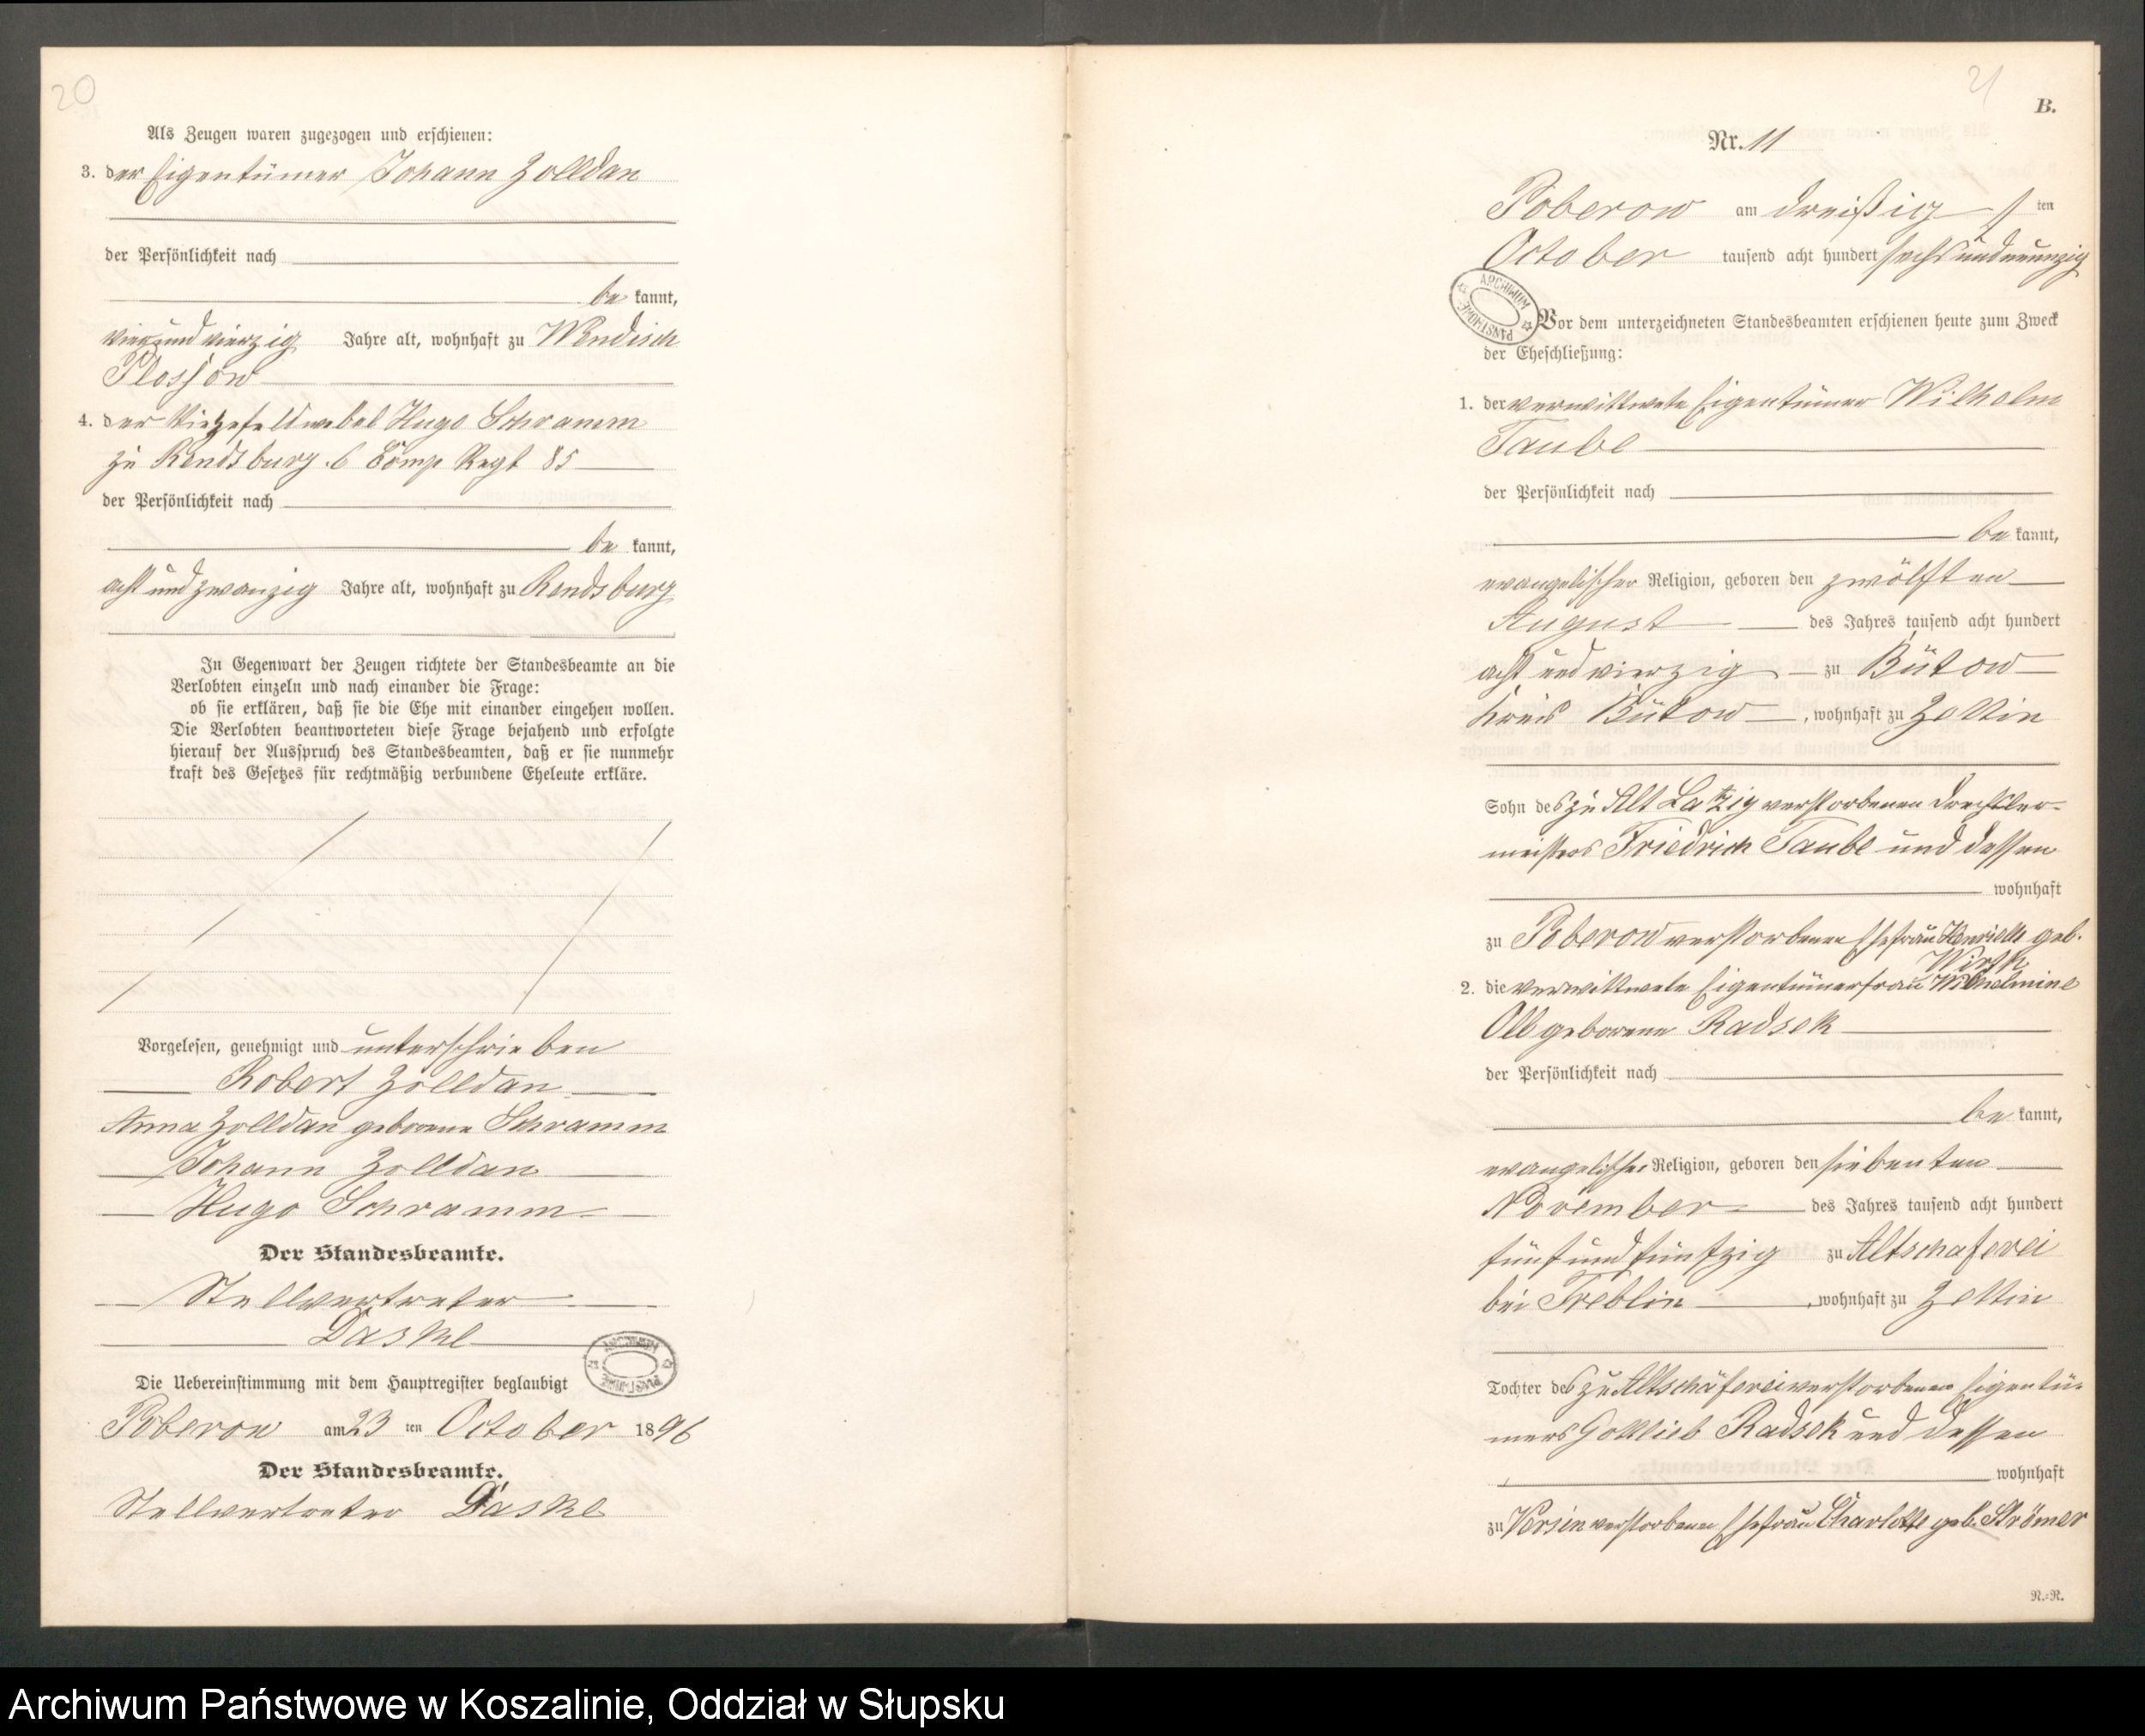 20
Als Zeugen waren zugezogen und erschienen:
3. der Eigentümer Johann Zolldan
der Persönlichkeit nach
be kannt,
vierundvierzig Jahre alt, wohnhaft zu Wendisch
Plassow
4. der Vizefeldwebel Hugo Schramm
zu Rendsburg 6 Comp Regt 85
der Persönlichkeit nach
be kannt,
acht und zwanzig Jahre alt, wohnhaft zu Rendsburg
In Gegenwart der Zeugen richtete der Standesbeamte an die
Verlobten einzeln und nach einander die Frage:
ob sie erklären, daß sie die Ehe mit einander eingehen wollen.
Die Verlobten beantworteten diese Frage bejahend und erfolgte
hierauf der Ausspruch des Standesbeamten, daß er sie nunmehr
kraft des Gesetzes für rechtmäßig verbundene Eheleute erkläre.
Vorgelesen, genehmigt und unterschrieben
Robert Zolldan
Anna Zolldan geborene Schramm
Johann Zolldan
Hugo Schramm
Der Standesbeamte.
Stellvertreter
Daske
ARCHIWUM PAŃSTWOWE
Die Uebereinstimmung mit dem Hauptregister beglaubigt
Poberow am 23 ten October 1896
Der Standesbeamte.
Stellvertreter Daske
21
B.
Nr. 11
Poberow am dreißig s ten
October tausend acht hundert sechsundneunzig
ARCHIWUM PAŃSTWOWE
Vor dem unterzeichneten Standesbeamten erschienen heute zum Zweck
der Eheschließung:
1. der verwittwete Eigentümer Wilhelm
Taube
der Persönlichkeit nach
be kannt,
evangelischer Religion, geboren den zwölften
August des Jahres tausend acht hundert
acht und vierzig zu Bütow
Kreis Bütow, wohnhaft zu Zettin
Sohn des zu Alt Latzig verstorbenen Drechsler-
meisters Friedrich Taube und dessen
wohnhaft
zu Poberow verstorbenen Ehefrau Henriette geb.
2. die verwittwete Eigentümerfrau Wilhelmine
Oll geborene Radsek
der Persönlichkeit nach
be kannt,
evangelischer Religion, geboren den siebenten
November des Jahres tausend acht hundert
fünf und fünfzig zu Altschäferei
bei Treblin, wohnhaft zu Zettin
Tochter des zu Altschäferei verstorbenen Eigentü-
mers Gottlieb Radsek und dessen
wohnhaft
zu Versin verstorbenen Ehefrau Charlotte geb. Strömer
R.=R.
Archiwum Państwowe w Koszalinie, Oddział w Słupsku